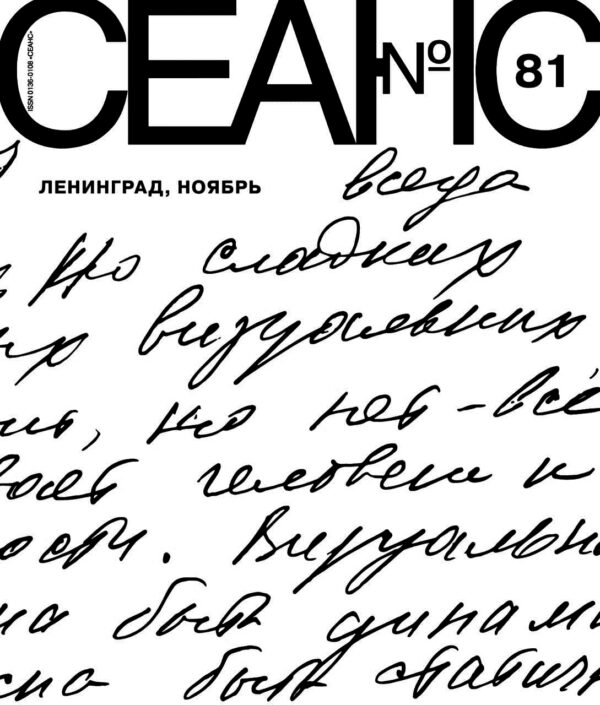 СЕАНС
№ 81
ISSN 0136-0108 «СЕАНС»
ЛЕНИНГРАД, НОЯБРЬ
всегда
но сладких
их визуальных
но нет – всё
человека к
ости. Визуальн
на быть динами
быть статич